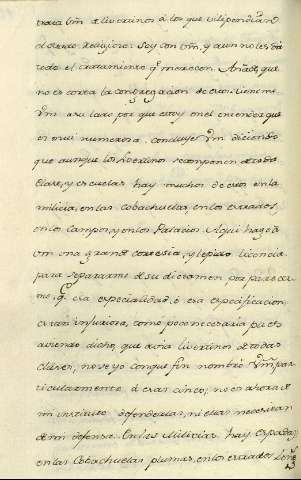 trata Vm. de livertinos à los que vilipendiaron
el estado Religioso: Soy con Vm, y aun no les dà
todo el tratamiento q.e merecen. Añade, que
no es corta la congregacion de
Vm a su lado por que estoy en el entender que
es mui numerosa. Concluye Vm diciendo
que aunque los livertinos se componen de toda
Clase, y escuelas hay muchos de ellos en la
milicia, en las cobachuelas, en los estrados,
en los Campos, y en los Palacios. Aqui hago à
Vm una grande cortesia, y le pido licencia
para separarme de su dictamen por parecer
me, q.e esa especialidad, ò esa especificacion
es tan injuriosa, como poco necesaria pues
aviendo dicho, que avia livertinos de todas
Clases, no se yo con que fin nombrò Vm par
ticularmente à esas cinco; no es ahora de
mi instituto defenderlas, ni ellas necesitan
de mi defensa. En las Milicias hay Espadas,
en las Cobachuelas plumas, en los estrados